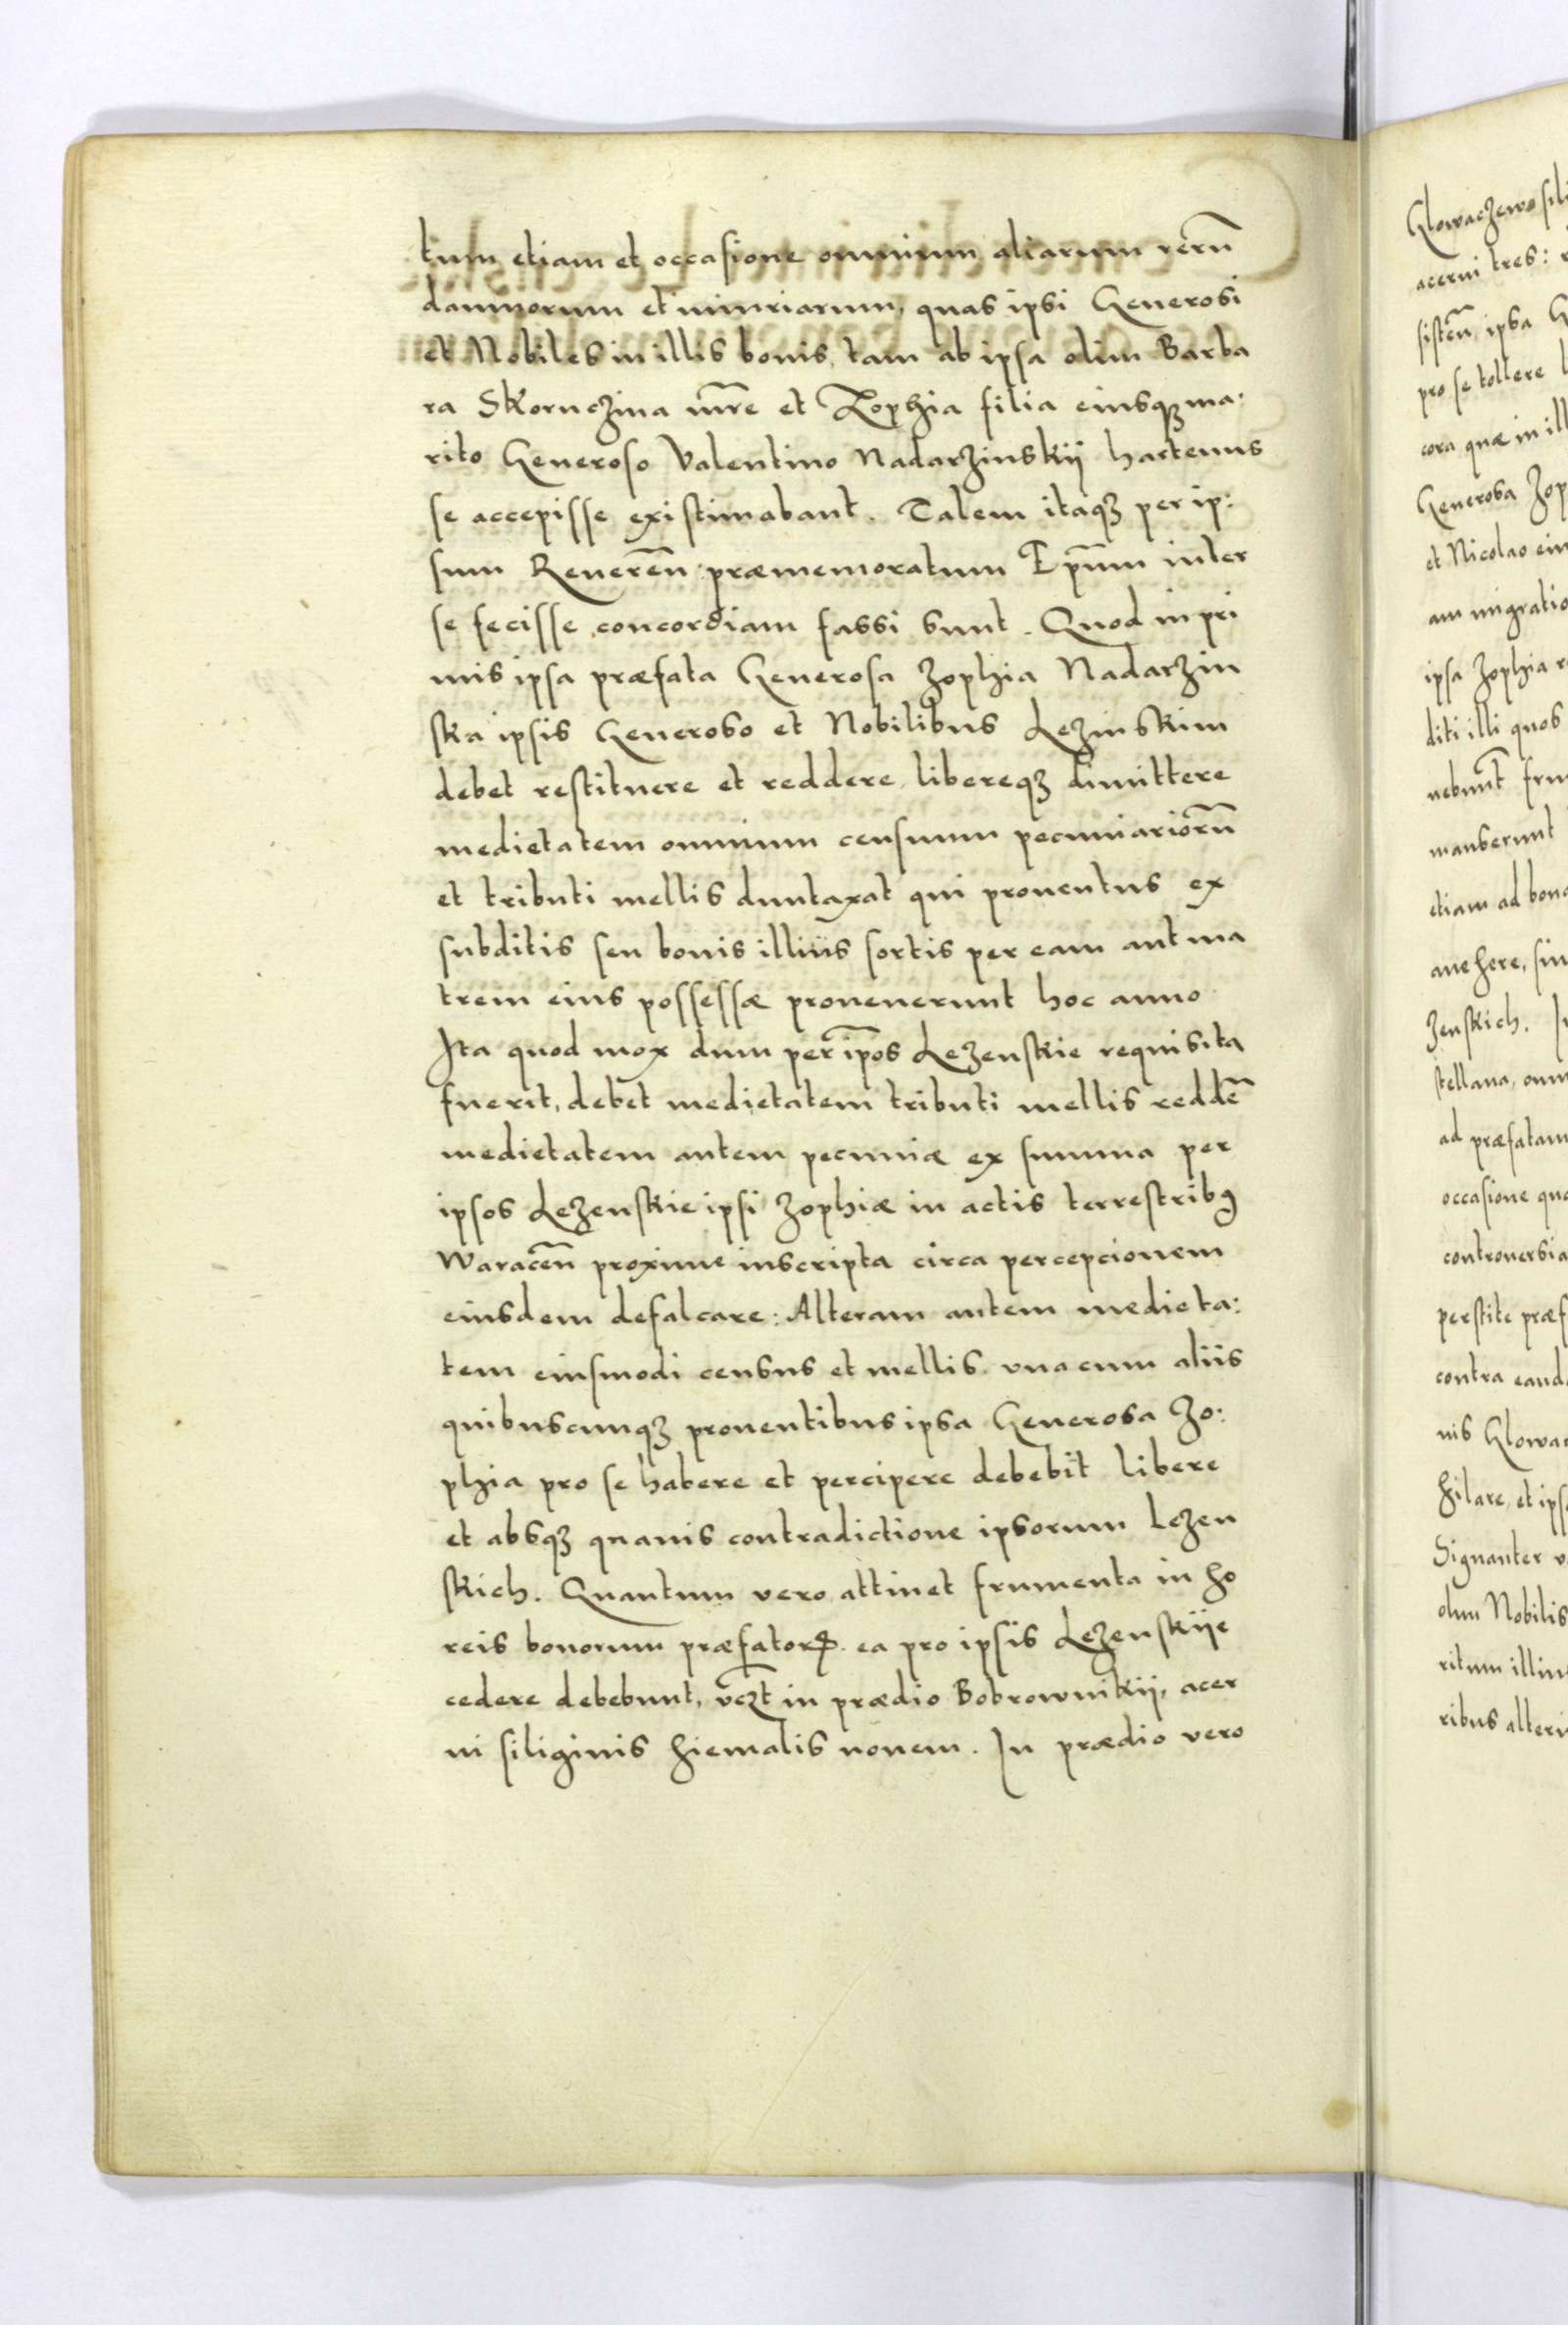 tum etiam et occasione omnium aliarum rerũ
damnorum et iniuriarum, quas ipsi Generosi
et Nobiles in illis bonis, tam ab ipsa olim Barba
ra Skornczina mr̃e et Zophia filia eiusqꝫ ma:
rito Generoso Valentino Nadarzinskij hactenus
se accepisse existimabant. Talem itaqꝫ per ip:
sum Reuerẽn: præmemoratum Ep̃um inter
se fecisse concordiam fassi sunt. Quod in pri
mis ipsa præfata Generosa Zophia Nadarzin
ska ipsis Generoso et Nobilibus Lezinskim
debet restituere et reddere, libereqꝫ dimittere
medietatem omnium censuum pecuniariorũ
et tributi mellis duntaxat qui prouentus ex
subditis seu bonis illius sortis per eam aut ma
trem eius possessæ prouenerunt hoc anno
Ita quod mox dum per ip̃os Lezenskie requisita
fuerit, debet medietatem tributi mellis reddẽ
medietatem autem pecuniæ ex summa per
ipsos Lezenskie ipsi Zophiæ in actis terrestribꝰ
Waracẽn proxime inscripta circa percepcionem
eiusdem defalcare: Alteram autem medieta:
tem eiusmodi census et mellis. vna cum aliis
quibuscunqꝫ prouentibus ipsa Generosa Zo:
phia pro se habere et percipere debebit libere
et absqꝫ quauis contradictione ipsorum Lezen
skich. Quantum vero attinet frumenta in ho
reis bonorum præfatorꝝ. ea pro ipsis Lezenskije
cedere debebunt, vcꝫt in prædio Bobrownikij, acer
ui siliginis hiemalis nouem. In prædio vero
Glowaczewo sili
acerui tres:
sisteñ ipsa
pro se tollere
cora quæ in ill
Generosa Zop
et Nicolao eiu
am migratio
ipsa Zophia
diti illi quos
nebunt fru
manserunt
etiam ad bona
auehere, sin
zenskich.
stellana, omn
ad præfatam
occasione qua
controuersia
perstite præf
contra eand
nis Glowac
hilare, et ips
Signanter
olim Nobilis
ritum illius
ribus alteri